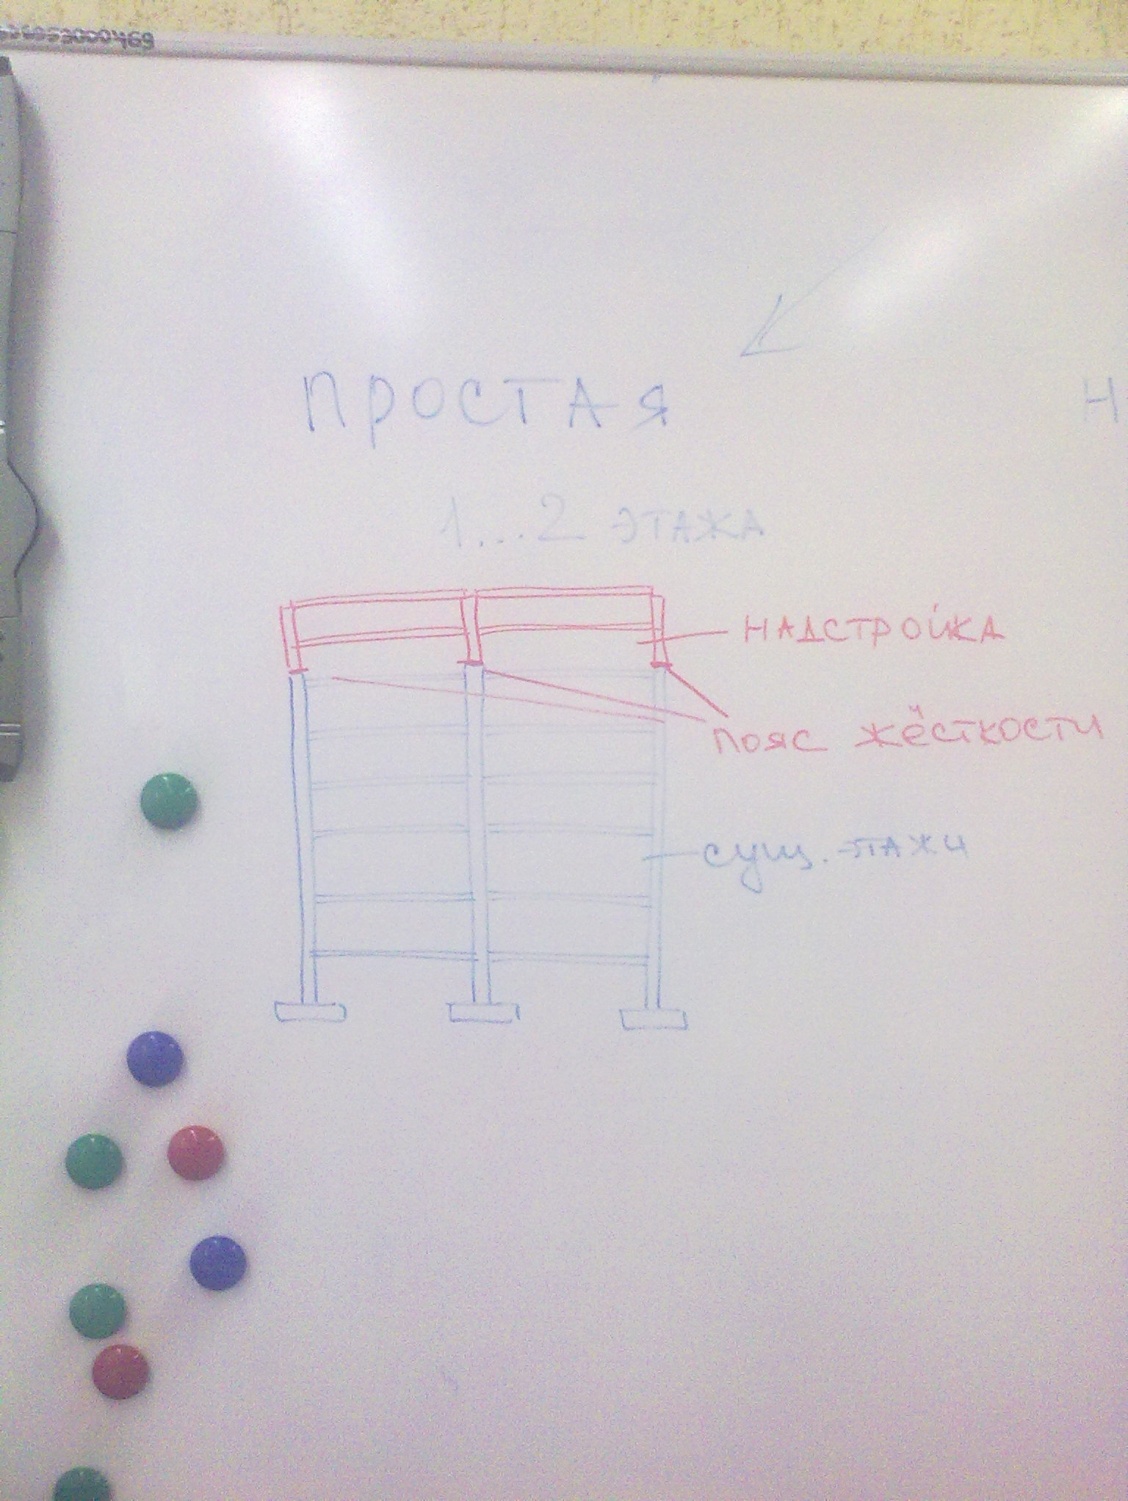 ПРОСТАЯ
1...2 ЭТАЖА
НАДСТРОЙКА
ПОЯС ЖЁСТКОСТИ
сущ. этажи